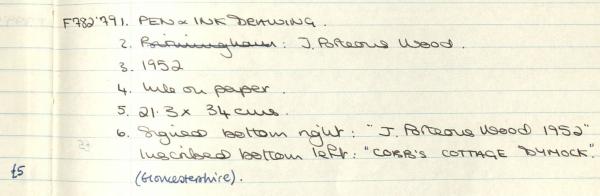 F782'79 1. PEN & INK DRAWING.
2. Birmingham: J. Porteous Wood.
3. 1952
4. Ink on paper.
5. 21.3 x 34 cms.
6. Signed bottom right: "J. Porteous Wood 1952"
Inscribed bottom left: "COBB'S COTTAGE DYMOCK".
£5 (Gloucestershire).